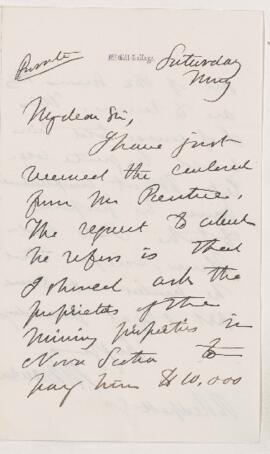 Private
McGill College.
Saturday
Mng
My dear Sir,
I have just
received the enclosed
from Mr Prentice.
The request to which
he refers is that
I should ask the
proprietors of the
mining properties in
Nova Scotia to
pay him $10,000